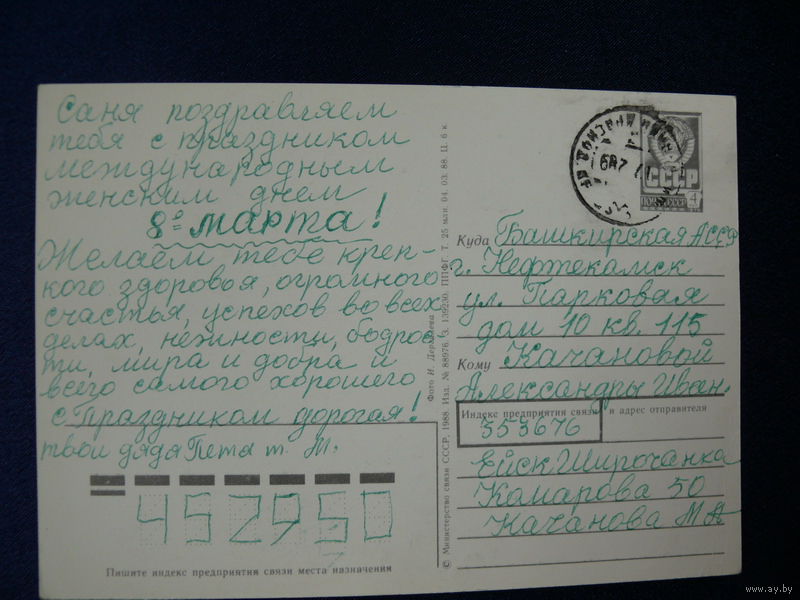 Саня поздравляем
тебя с праздником
международным
женским днем
8º марта!
Желаем тебе креп-
кого здоровья, огромного
счастья, успехов во всех
делах, нежности, бодрос-
ти, мира и добра и
всего самого хорошего
с Праздником дорогая!
твои дядя Петя т. М.
452950
Пишите индекс предприятия связи места назначения
© Министерство связи СССР, 1988. Изд. № 88976. З. 139230. ППФГ. Т. 25 млн. 04. 03. 88. Ц. 6 к
СССР
4
Куда Башкирская АССР
г. Нефтекамск
ул. Парковая
дом 10 кв. 115
Кому Качановой
Александры Иван.
Индекс предприятия связи и адрес отправителя
353676
Ейск Широчанка
Комарова 50
Качанова М А
www.ay.by